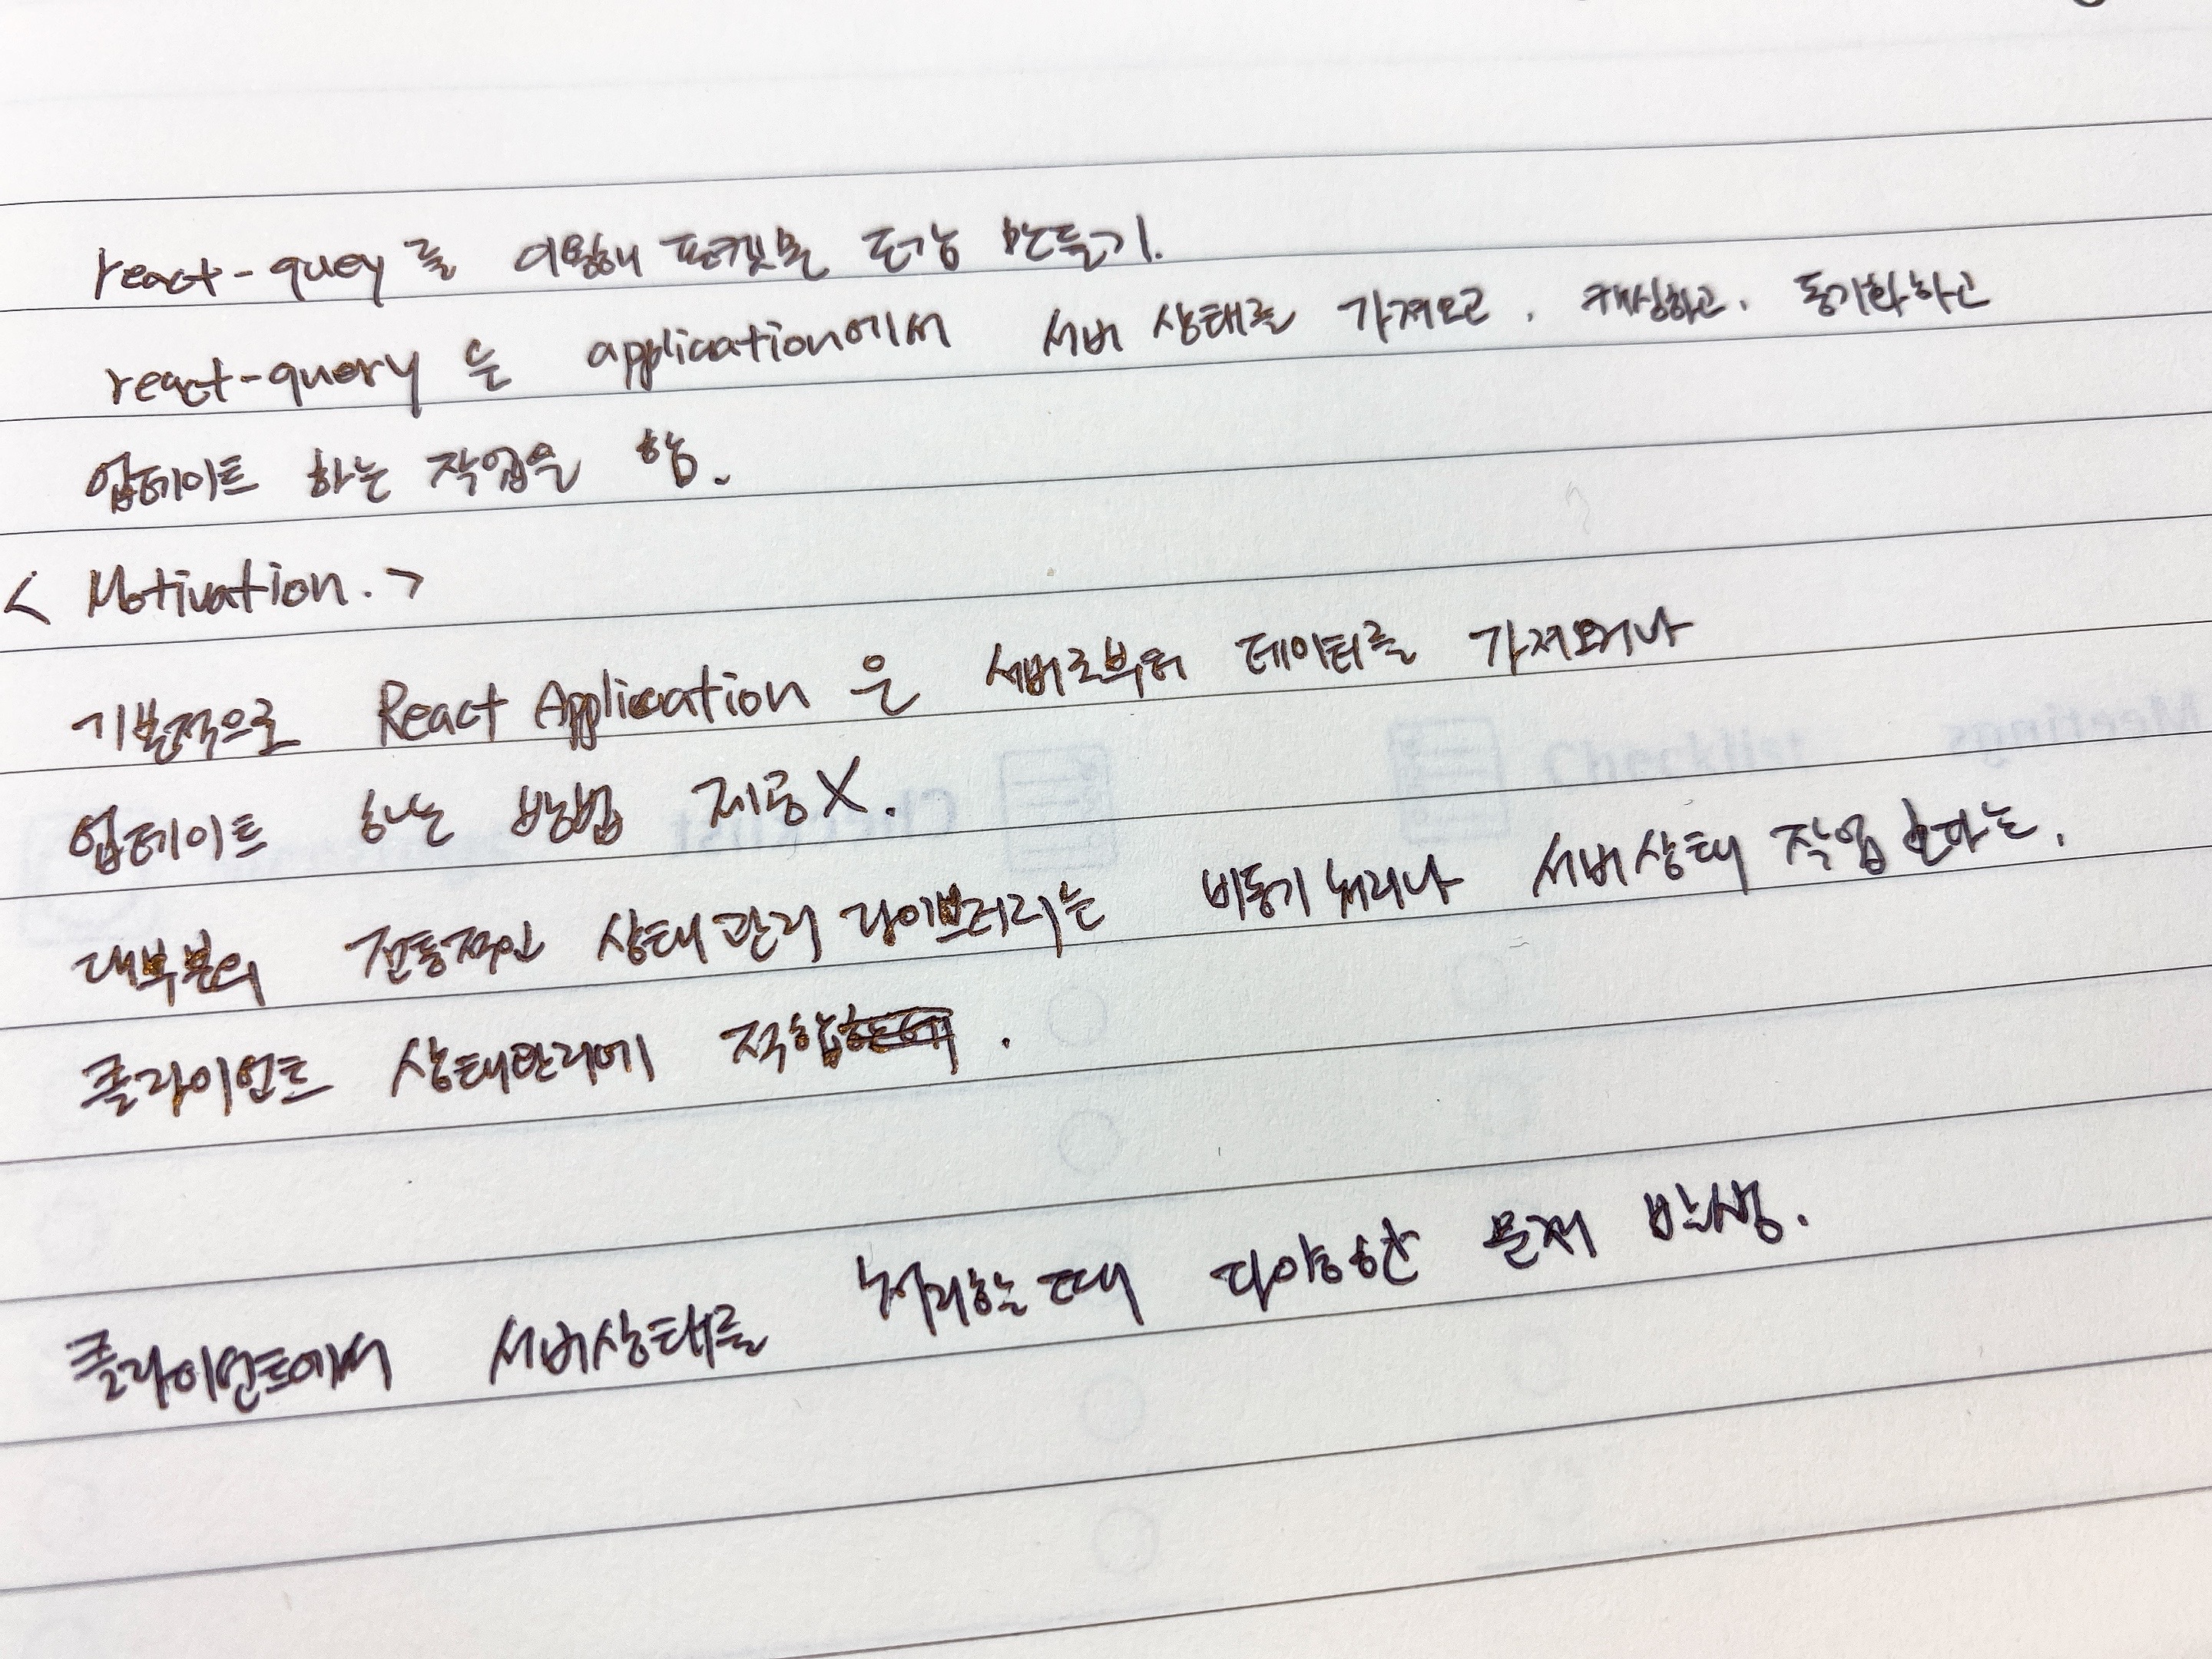 react-quey를 이용해 포켓몬 도감 만들기.
react-query는 application에서 서버 상태를 가져오고, 캐싱하고, 동기화하고
업데이트 하는 작업을 함.
< Motivation. >
기본적으로 React Application 은 서버로부터 데이터를 가져오거나
업데이트 하는 방법 제공X.
Checklist
Checklist
Meetings
대부분의 전통적인 상태 관리 라이브러리는 비동기 처리나 서버상태 작업 보다는,
클라이언트 상태관리에 적합.
클라이언트에서 서버상태를 처리하는 때 다양한 문제 발생.